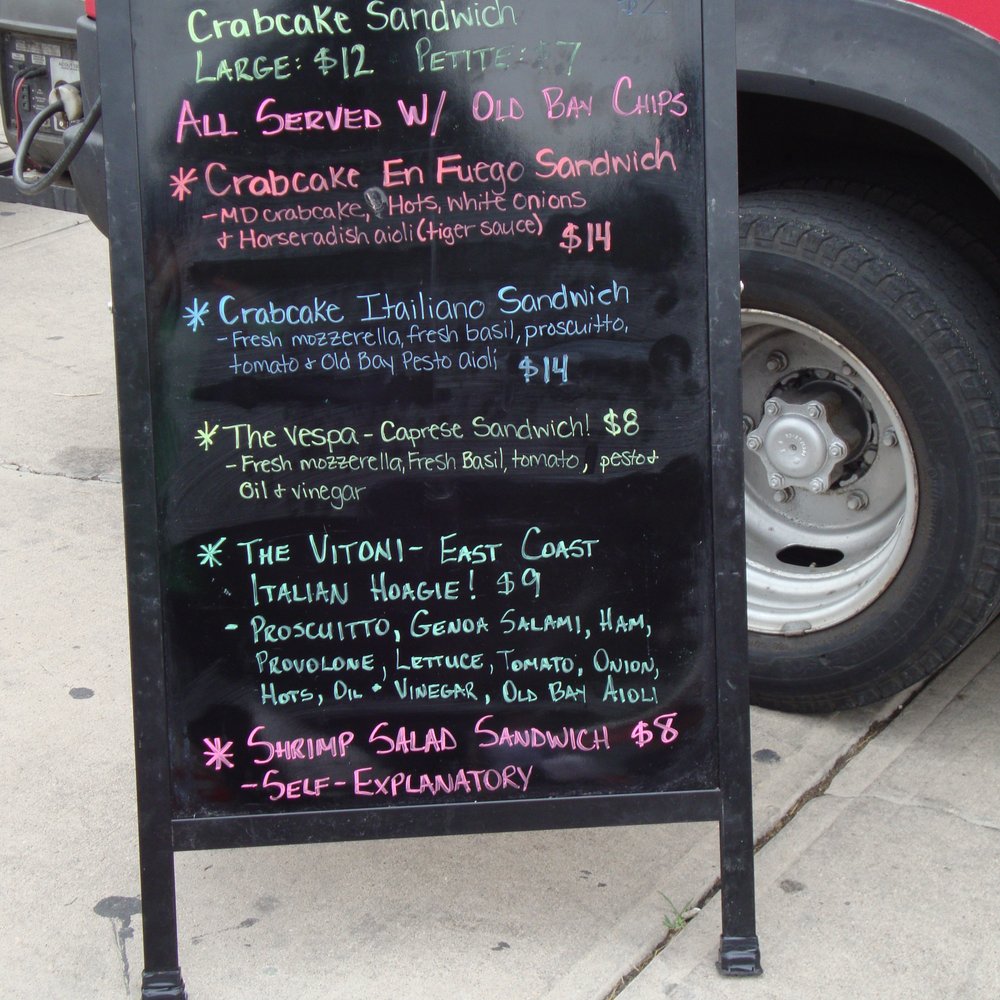 Crabcake Sandwich
LARGE: $12 PETITE: $7
ALL SERVED W/ OLD BAY CHIPS
* Crabcake En Fuego Sandwich
- MD crabcake, Hots, white onions
+ Horseradish aioli (tiger sauce) $14
* Crabcake Itailiano Sandwich
- Fresh mozzerella, fresh basil, proscuitto,
tomato + Old Bay Pesto aioli $14
* The Vespa - Caprese Sandwich! $8
- Fresh mozzerella, Fresh Basil, tomato, pesto +
Oil + vinegar
* THE VITONI - EAST COAST
ITALIAN HOAGIE! $9
- PROSCUITTO, GENOA SALAMI, HAM,
PROVOLONE, LETTUCE, TOMATO, ONION,
HOTS, OIL + VINEGAR, OLD BAY AIOLI
* SHRIMP SALAD SANDWICH $8
- SELF-EXPLANATORY